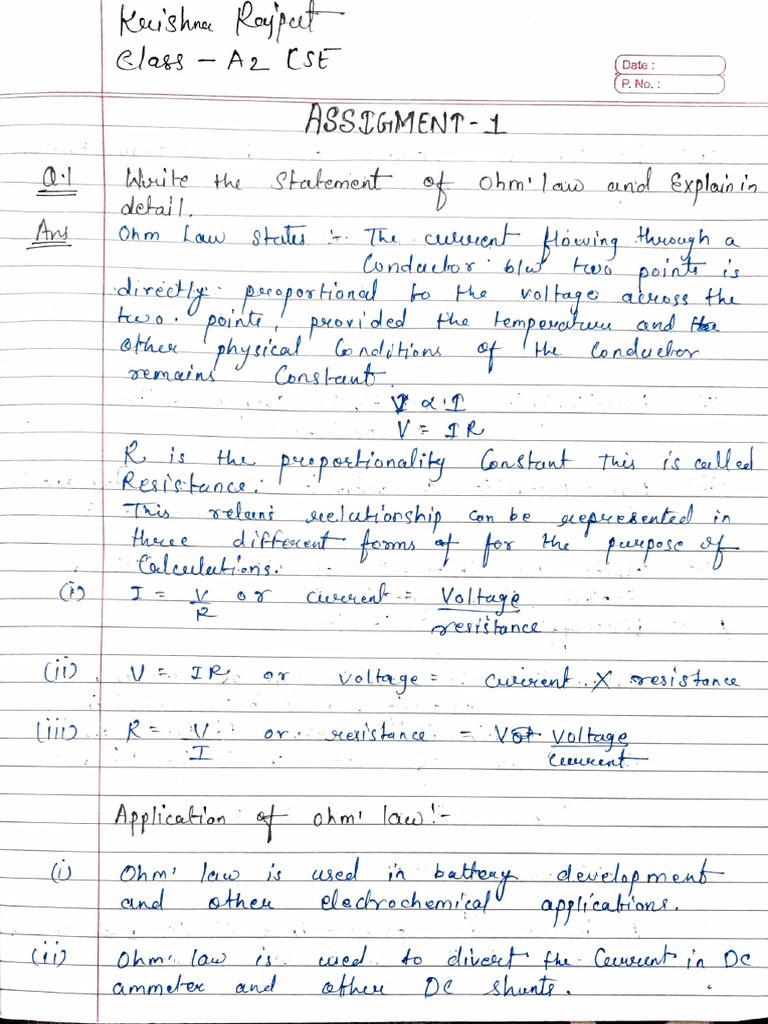 Krishna Rajput
Class - A2 CSE
Date :
P. No. :
ASSIGMENT-1
Q.1 Write the Statement of Ohm' law and Explain in
detail.
Ans Ohm Law states :- The current flowing through a
Conductor b/w two points is
directly proportional to the voltage across the
two points, provided the temperature and the
other physical Conditions of the Conductor
remains Constant.
V ∝ I
V = IR
R is the proportionality Constant This is called
Resistance.
This relationship can be represented in
three different forms for the purpose of
Calculations.
(i) I = V/R or current = Voltage/resistance
(ii) V = IR or voltage = current X resistance
(iii) R = V/I or resistance = Voltage/current
Application of ohm' law:-
(i) Ohm' law is used in battery development
and other electrochemical applications.
(ii) Ohm' law is used to divert the Current in DC
ammeter and other DC shunts.